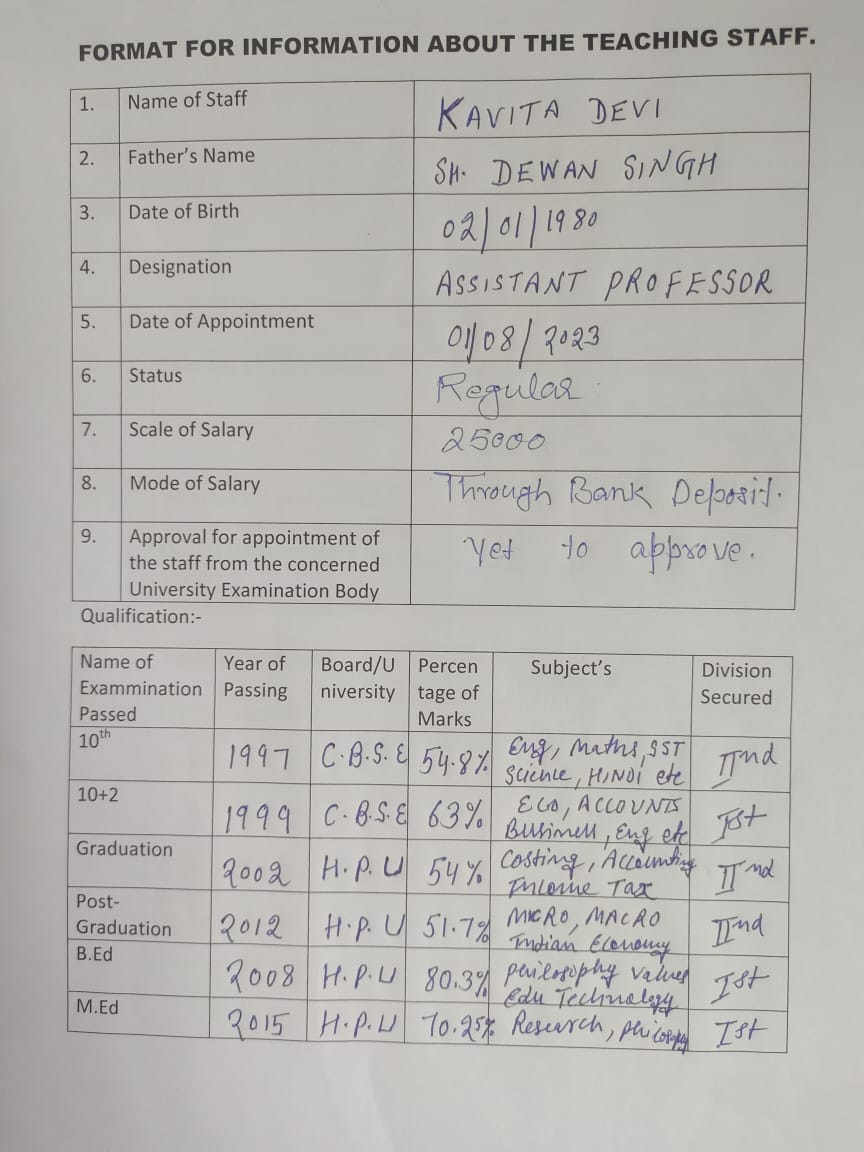 FORMAT FOR INFORMATION ABOUT THE TEACHING STAFF.
1. Name of Staff KAVITA DEVI
2. Father's Name SH. DEWAN SINGH
3. Date of Birth 02/01/1980
4. Designation ASSISTANT PROFESSOR
5. Date of Appointment 01/08/2023
6. Status Regular
7. Scale of Salary 25000
8. Mode of Salary Through Bank Deposit.
9. Approval for appointment of Yet to approve.
the staff from the concerned
University Examination Body
Qualification:-
Name of Year of Board/U Percen Subject's Division
Exammination Passing niversity tage of Secured
Passed Marks
10th 1997 C.B.S.E 54.8% Eng, Maths, SST IInd
Science, HINDI etc
10+2 1999 C.B.S.E 63% ECO, ACCOUNTS Ist
Business, Eng etc
Graduation 2002 H.P.U 54% Costing, Accounting IInd
Income Tax
Post- 2012 H.P.U 51.7% MICRO, MACRO IInd
Graduation Indian Economy
B.Ed 2008 H.P.U 80.3% philosophy values Ist
Edu Technology
M.Ed 2015 H.P.U 70.25% Research, philosophy Ist